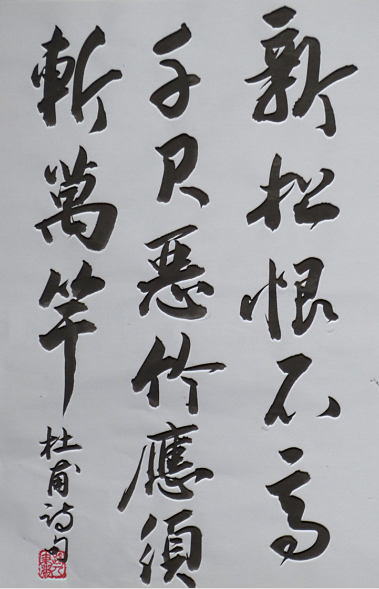 新松恨不高
千尺惡竹應須
斬萬竿
杜甫詩句